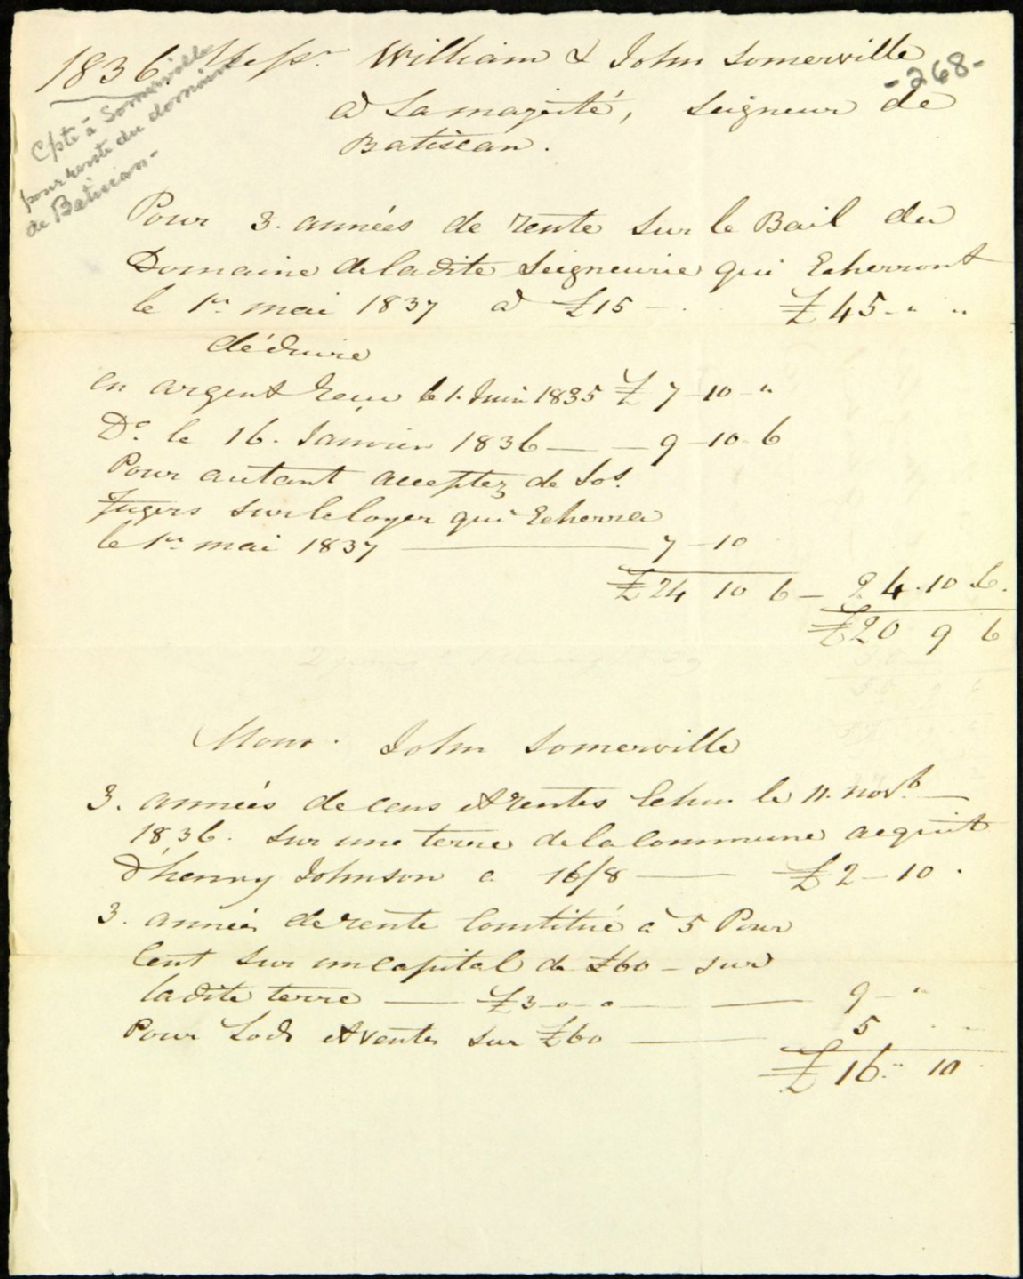 1836 Messrs. William & John Somerville
-268-
à Sa majesté, Seigneur de
Batiscan.
Cpte à Somerville
pour rente du domaine
de Batiscan-
Pour 3. années de rente sur le Bail du
Domaine de la dite Seigneurie qui Echerront
le 1er. mai 1837 à £15 - £45 - " "
déduire
en argent reçu le 1. Juin 1835 £ 7 - 10 - "
Do. le 16. Janvier 1836 — — 9 - 10 - 6
Pour autant acceptez de Jos.
sur le loyer qui Echerra
le 1er mai 1837 — 7 - 10
£24 10 6 — 24 . 10 6.
£20 9 6
Monr. John Somerville
3. années de cens et rentes Echus le 11. novb. —
1836. sur une terre de la Commune acquit
D'henry Johnson à 16/8 — £2 - 10 .
3. années de rente Constitué à 5 Pour
Cent sur un capital de £60 - sur
la dite terre — £3 - " - " — 9 - "
Pour Lods et ventes sur £60 — 5
£16 - 10